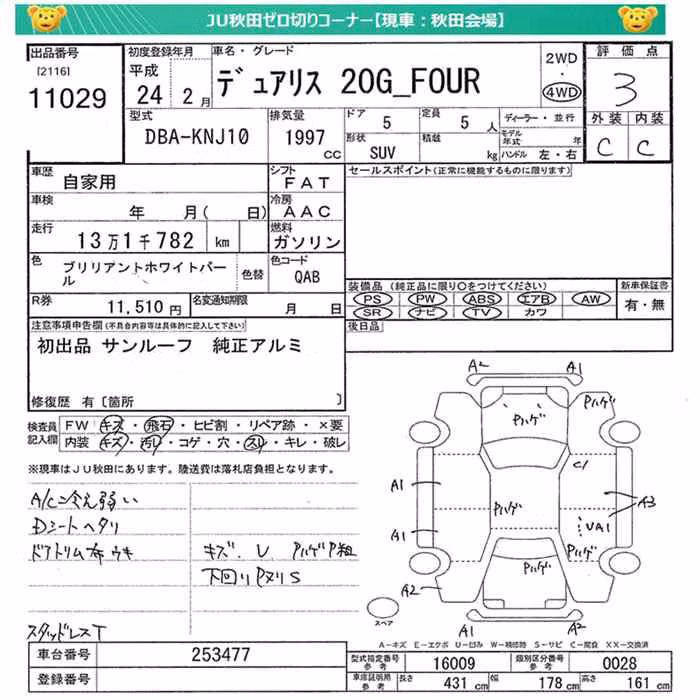 JU秋田ゼロ切りコーナー【現車：秋田会場】
出品番号
[2116]
11029
初度登録年月
平成
24 2月
車名・グレード
デュアリス 20G_FOUR
2WD
・
4WD
評価点
3
外装 内装
C C
型式
DBA-KNJ10
排気量
1997
CC
ドア
5
定員
5 人
形状
SUV
積載
kg
ディーラー・並行
モデル年式 年
ハンドル 左・右
車歴
自家用
シフト
FAT
セールスポイント(正常に機能するものに限ります)
車検
年 月( 日)
冷房
AAC
走行
13万1千782 km
燃料
ガソリン
色
ブリリアントホワイトパール
色替
色コード
QAB
装備品 (純正品に限り○をつけてください)
PS PW ABS エアB AW
SR ナビ TV カワ
新車保証書
有・無
R券
11,510円
名変通知期限
月 日
後日品
注意事項申告欄(不具合内容等は具体的に記入して下さい)
初出品 サンルーフ 純正アルミ
修復歴 有〔箇所 〕
検査員記入欄
FW キズ・飛石・ヒビ割・リペア跡・×要
内装 キズ・汚れ・コゲ・穴・スレ・キレ・破レ
※現車はJU秋田にあります。陸送費は落札店負担となります。
A/C冷え弱い
Dシートヘタリ
ドアトリム布ウキ
キズ.U Pハゲ P粗
下回りPヌリS
スタッドレスT
A2 A1
Pハゲ Pハゲ
C1
A1 Pハゲ A3
A1 UA1
A2 Pハゲ Pハゲ
A1 A2
スペア
A－キズ E－エクボ U－凹み W－補修跡 S－サビ C－腐食 XX－交換済
車台番号
253477
型式指定番号
参考
16009
類別区分番号
参考
0028
登録番号
車庫証明用
参考
長さ 431 cm
幅 178 cm
高さ 161 cm